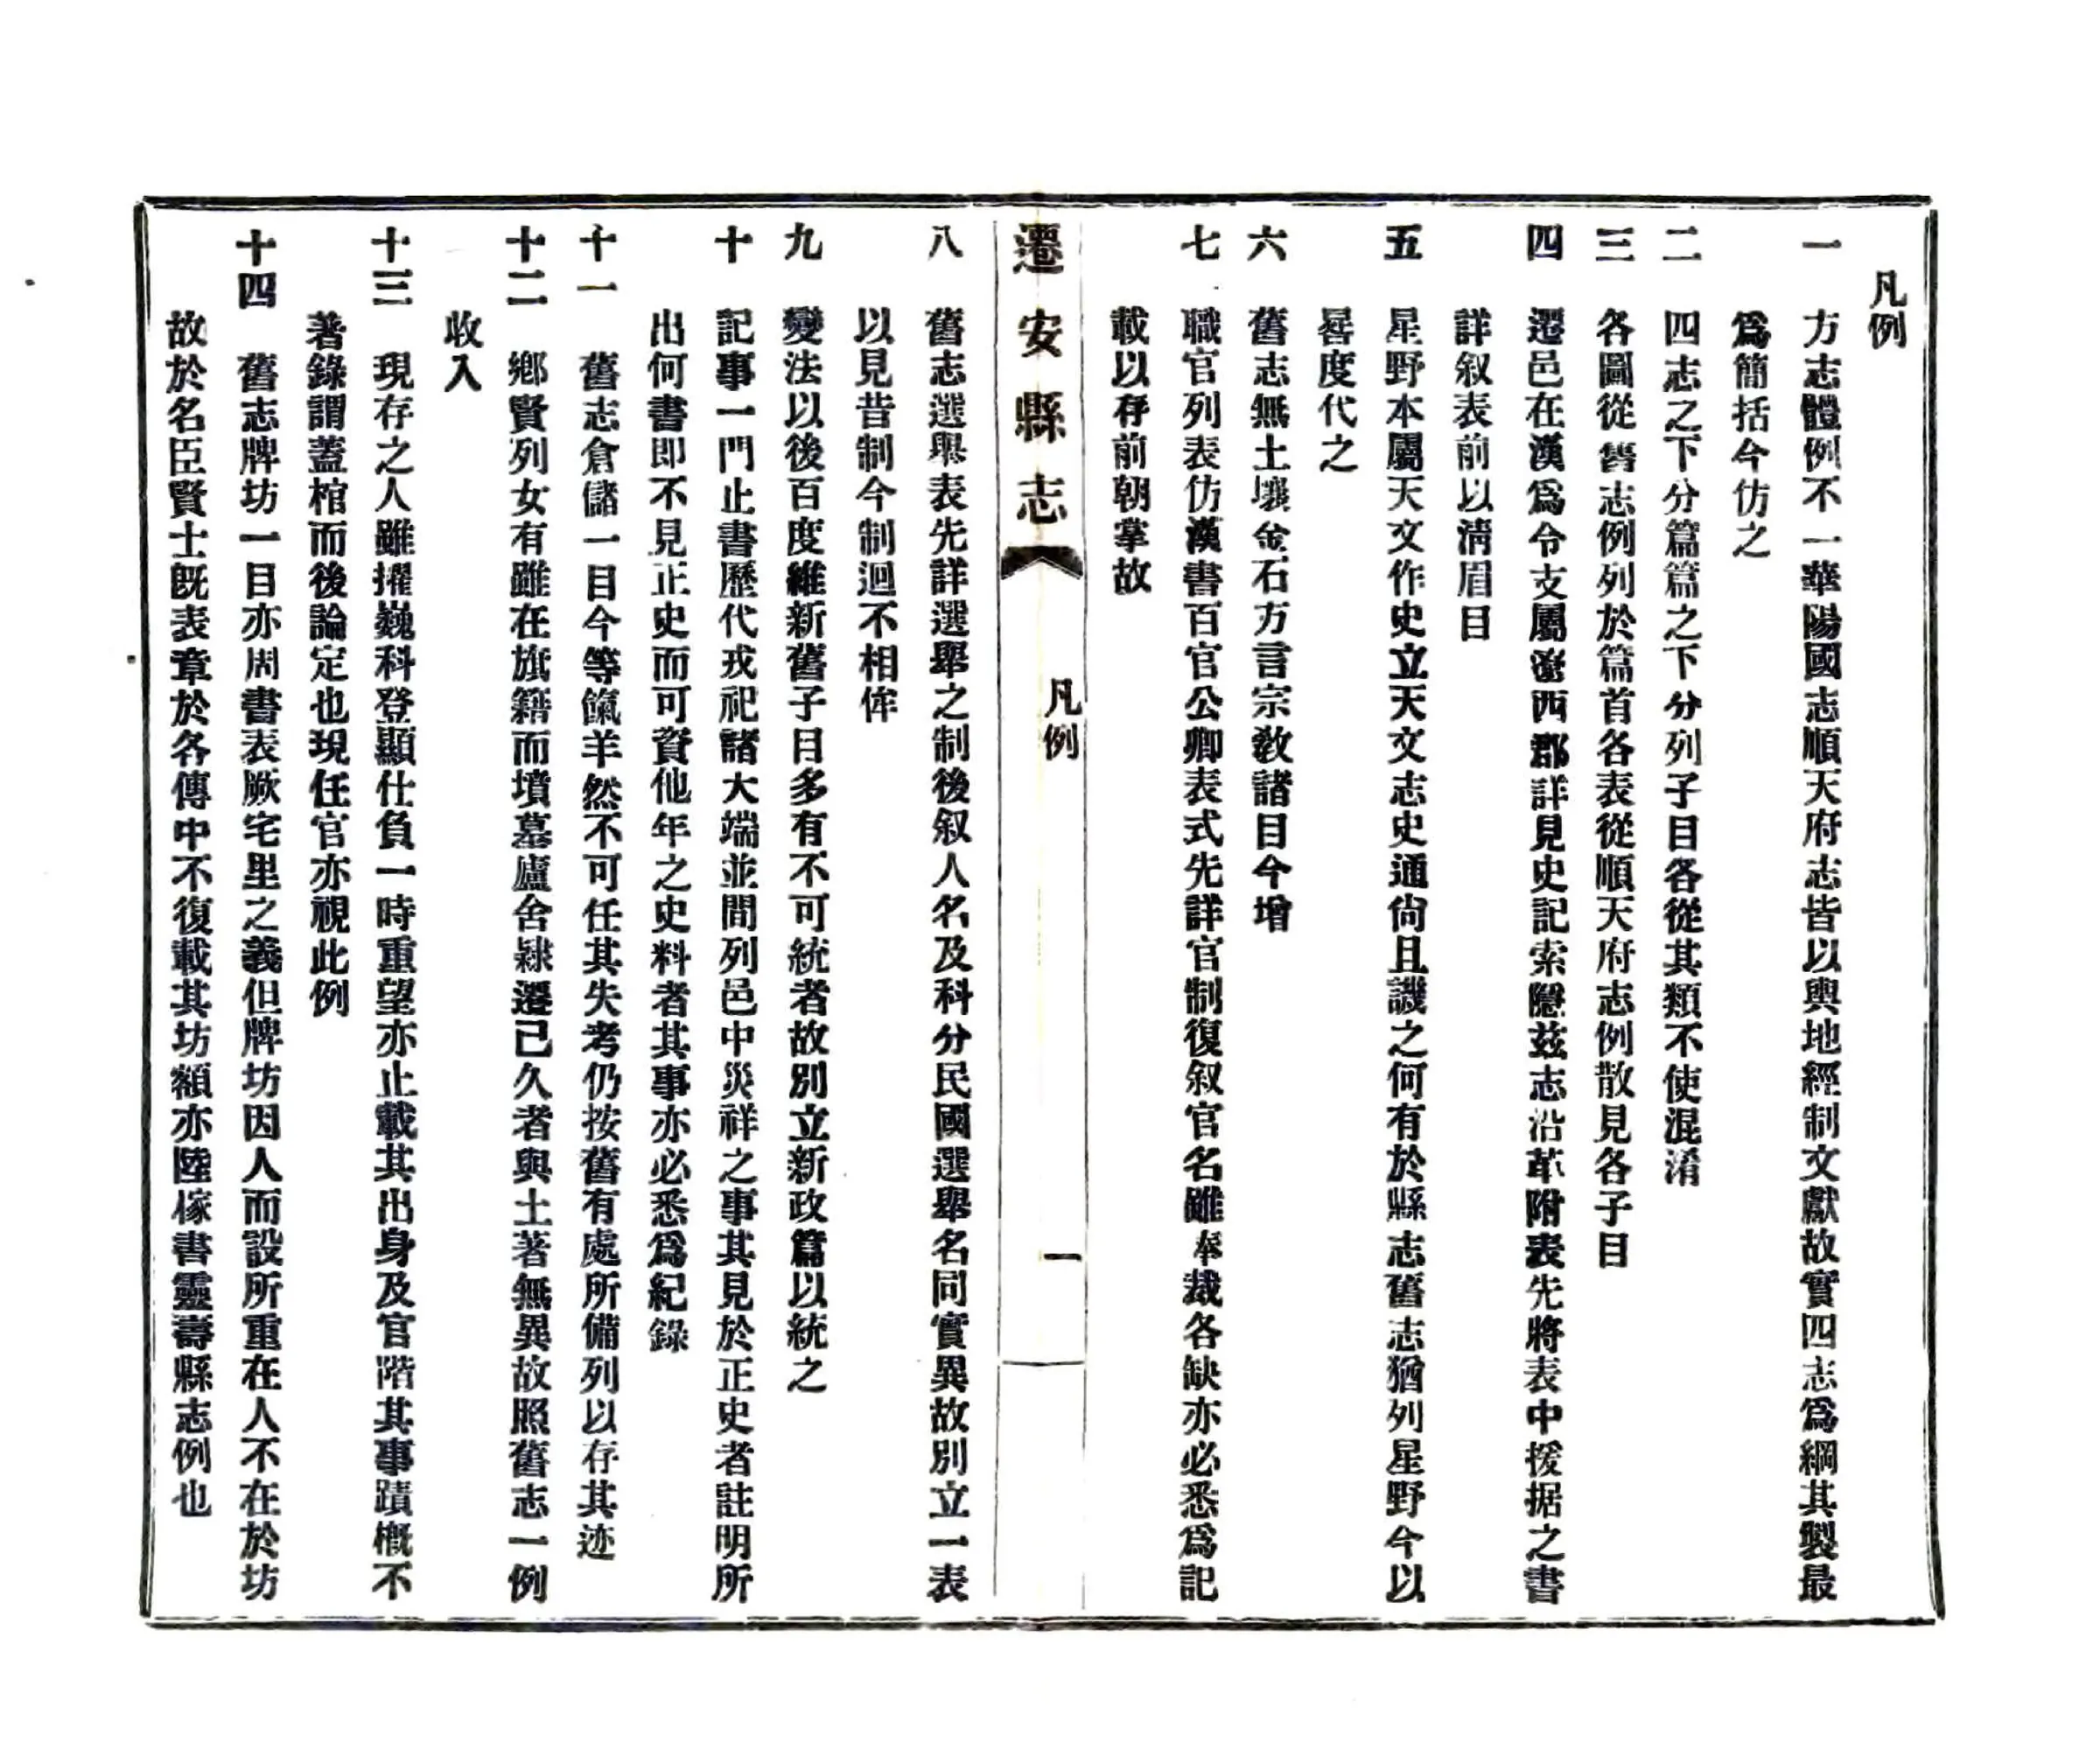 凡例
一　方志體例不一華陽國志順天府志皆以輿地經制文獻故實四志爲綱其製最
爲簡括今仿之
二　四志之下分篇篇之下分列子目各從其類不使混淆
三　各圖從舊志例列於篇首各表從順天府志例散見各子目
四　遷邑在漢爲令支屬遼西郡詳見史記索隱茲志沿革附表先將表中援据之書
詳叙表前以淸眉目
五　星野本屬天文作史立天文志史通尙且譏之何有於縣志舊志猶列星野今以
晷度代之
六　舊志無土壤金石方言宗敎諸目今增
七　職官列表仿漢書百官公卿表式先詳官制復叙官名雖奉裁各缺亦必悉爲記
載以存前朝掌故
遷安縣志
凡例
一
八　舊志選舉表先詳選舉之制後叙人名及科分民國選舉名同實異故別立一表
以見昔制今制迴不相侔
九　變法以後百度維新舊子目多有不可統者故別立新政篇以統之
十　記事一門止書歷代戎祀諸大端並間列邑中災祥之事其見於正史者註明所
出何書即不見正史而可資他年之史料者其事亦必悉爲紀錄
十一　舊志倉儲一目今等餼羊然不可任其失考仍按舊有處所備列以存其迹
十二　鄉賢列女有雖在旗籍而墳墓廬舍隸遷已久者與土著無異故照舊志一例
收入
十三　現存之人雖擢巍科登顯仕負一時重望亦止載其出身及官階其事蹟槪不
著錄謂蓋棺而後論定也現任官亦視此例
十四　舊志牌坊一目亦周書表厥宅里之義但牌坊因人而設所重在人不在於坊
故於名臣賢士旣表章於各傳中不復載其坊額亦陸稼書靈壽縣志例也